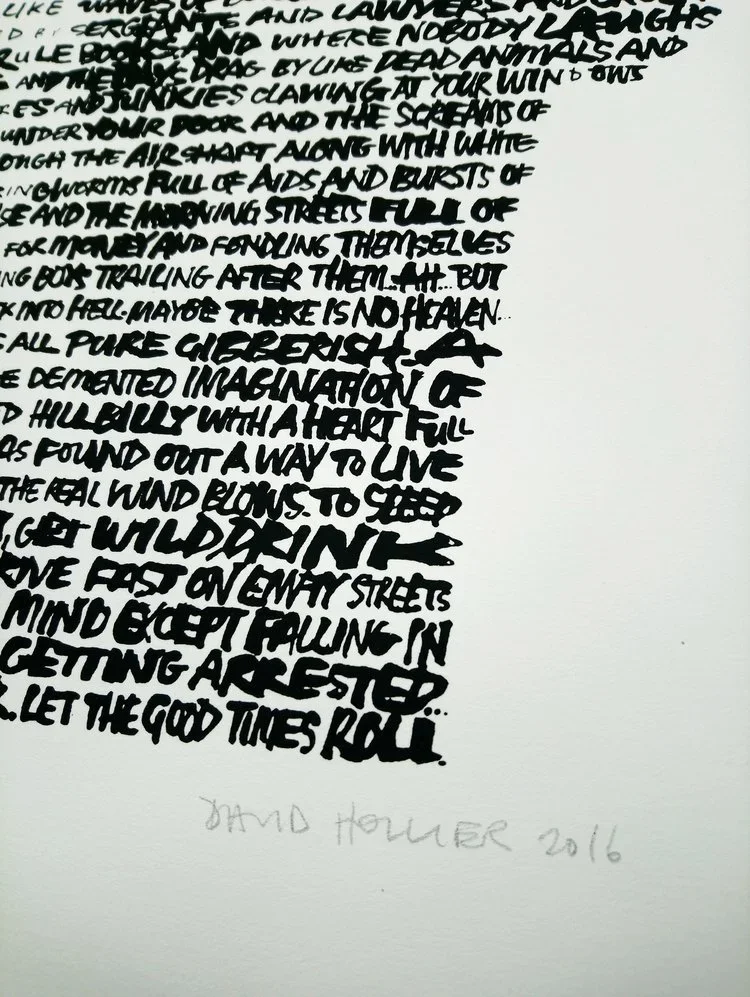 LIKE WAVES OF AND LAWYERS AND
SERGEANTS AND WHERE NOBODY LAUGHS
RULE BOOKS. AND DRAG BY LIKE DEAD ANIMALS AND
AND THE DAYS JUNKIES CLAWING AT YOUR WINDOWS
ES AND UNDER YOUR DOOR AND THE SCREAMS OF
OUGH THE AIRSHAFT ALONG WITH WHITE
RINGWORMS FULL OF AIDS AND BURSTS OF
SE AND THE MORNING STREETS FULL OF
FOR MONEY AND FONDLING THEMSELVES
NG BOYS TRAILING AFTER THEM..AH... BUT
K INTO HELL. MAYBE THERE IS NO HEAVEN...
S ALL PURE GIBBERISH. A
E DEMENTED IMAGINATION OF
D HILLBILLY WITH A HEART FULL
AS FOUND OUT A WAY TO LIVE
THE REAL WIND BLOWS. TO SLEEP
, GET WILD DRINK
RIVE FAST ON EMPTY STREETS
MIND EXCEPT FALLING IN
GETTING ARRESTED...
R. LET THE GOOD TIMES ROLL.
DAVID HOLLIER 2016